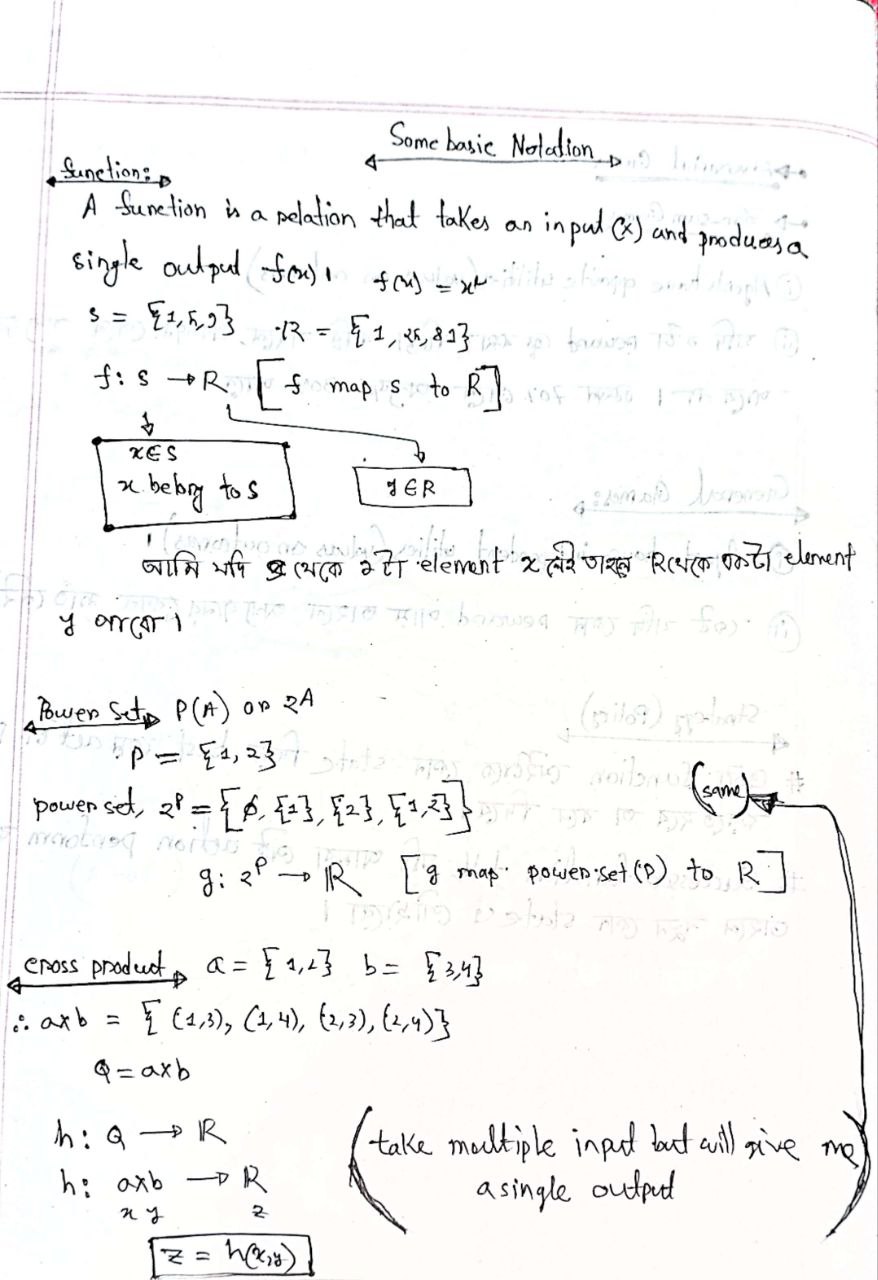 Some basic Notation
function:
A function is a relation that takes an input (x) and produces a
single output f(x)। f(x) = x²
s = {1,5,9} R = {1, 25, 81}
f: s → R [f map s to R]
x∈S
x belong to s
y∈R
আমি যদি s থেকে ১টা element x নেই তাহলে R থেকে একটা element
y পাবো।
Power Set P(A) or 2^A
P = {1,2}
power set, 2^P = {ϕ, {1}, {2}, {1,2}}
(same)
g: 2^P → ℝ [g map power set (P) to R]
cross product a = {1,2} b = {3,4}
∴ axb = {(1,3), (1,4), (2,3), (2,4)}
Q = axb
h: Q → ℝ
(take multiple input but will give me
a single output)
h: axb → ℝ
x y z
z = h(x,y)